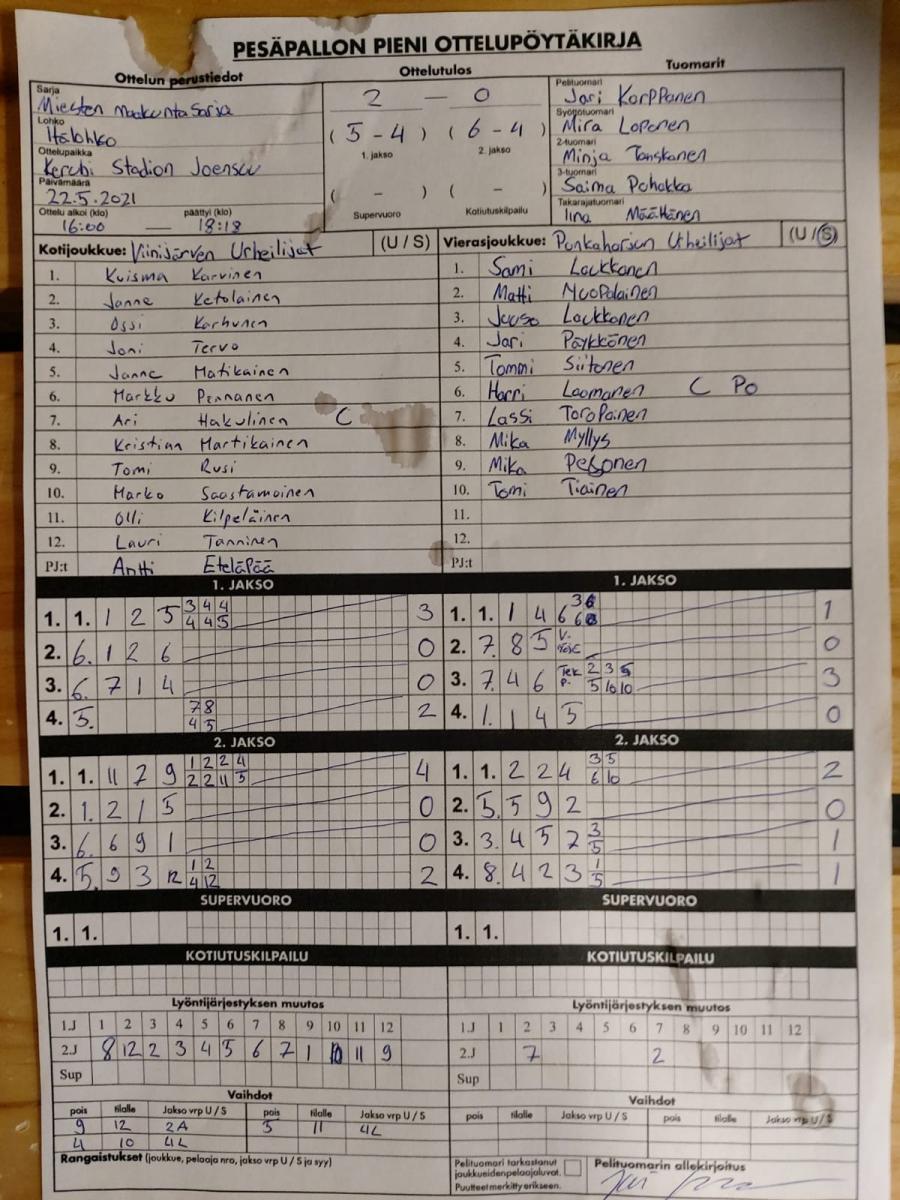 PESÄPALLON PIENI OTTELUPÖYTÄKIRJA
Ottelun perustiedot
Ottelutulos
Tuomarit
Sarja
Miesten maakuntasarja
Lohko
Itälohko
Ottelupaikka
Kerubi Stadion Joensuu
Päivämäärä
22.5.2021
Ottelu alkoi (klo) päättyi (klo)
16:00 — 18:18
2 — 0
( 5 - 4 ) ( 6 - 4 )
1. jakso 2. jakso
( - ) ( - )
Supervuoro Kotiutuskilpailu
Pelituomari
Jari Korppanen
Syöttötuomari
Mira Loponen
2-tuomari
Minja Tanskanen
3-tuomari
Saima Pohakka
Takarajatuomari
Iina Määttänen
Kotijoukkue: Viinijärven Urheilijat (U / S)
1. Kuisma Karvinen
2. Janne Ketolainen
3. Ossi Karhunen
4. Joni Tervo
5. Janne Matikainen
6. Markku Pennanen
7. Ari Hakulinen C
8. Kristian Martikainen
9. Tomi Rusi
10. Marko Saastamoinen
11. Olli Kilpeläinen
12. Lauri Tanninen
PJ:t Antti Eteläpää
Vierasjoukkue: Punkaharjun Urheilijat (U / S)
1. Sami Laukkanen
2. Matti Muopolainen
3. Juuso Laukkanen
4. Jari Pöykkönen
5. Tommi Siitonen
6. Harri Laamanen C Po
7. Lassi Toropainen
8. Mika Myllys
9. Mika Pesonen
10. Tomi Tiainen
11.
12.
PJ:t
1. JAKSO
1. 1. 1 2 5 3 4 4 3
4 4 5
2. 6. 1 2 6 0
3. 6. 7 1 4 0
4. 5. 7 8 2
4 5
1. JAKSO
1. 1. 1 4 6 3 1
6 6
2. 7. 8 5 V. 0
3. 7. 4 6 2 3 9 3
P. 5 10 10
4. 1. 1 4 5 0
2. JAKSO
1. 1. 11 7 9 1 2 2 4 4
2 2 11 5
2. 1. 2 1 5 0
3. 6. 6 9 1 0
4. 5. 9 3 12 1 2 2
4 12
2. JAKSO
1. 1. 2 2 4 3 5 2
6 10
2. 5. 5 9 2 0
3. 3. 4 5 7 3 1
5
4. 8. 4 2 3 1 1
5
SUPERVUORO
1. 1.
SUPERVUORO
1. 1.
KOTIUTUSKILPAILU
KOTIUTUSKILPAILU
Lyöntijärjestyksen muutos
1.J 1 2 3 4 5 6 7 8 9 10 11 12
2.J 8 12 2 3 4 5 6 7 1 10 11 9
Sup
Lyöntijärjestyksen muutos
1.J 1 2 3 4 5 6 7 8 9 10 11 12
2.J 7 2
Sup
Vaihdot
pois tilalle Jakso vrp U / S pois tilalle Jakso vrp U / S
9 12 2A 5 11 4L
4 10 4L
Vaihdot
pois tilalle Jakso vrp U / S pois tilalle Jakso vrp U / S
Rangaistukset (joukkue, pelaaja nro, jakso vrp U / S ja syy)
Pelituomari tarkastanut
joukkueidenpelaajaluvat.
Puutteet merkitty erikseen.
Pelituomarin allekirjoitus